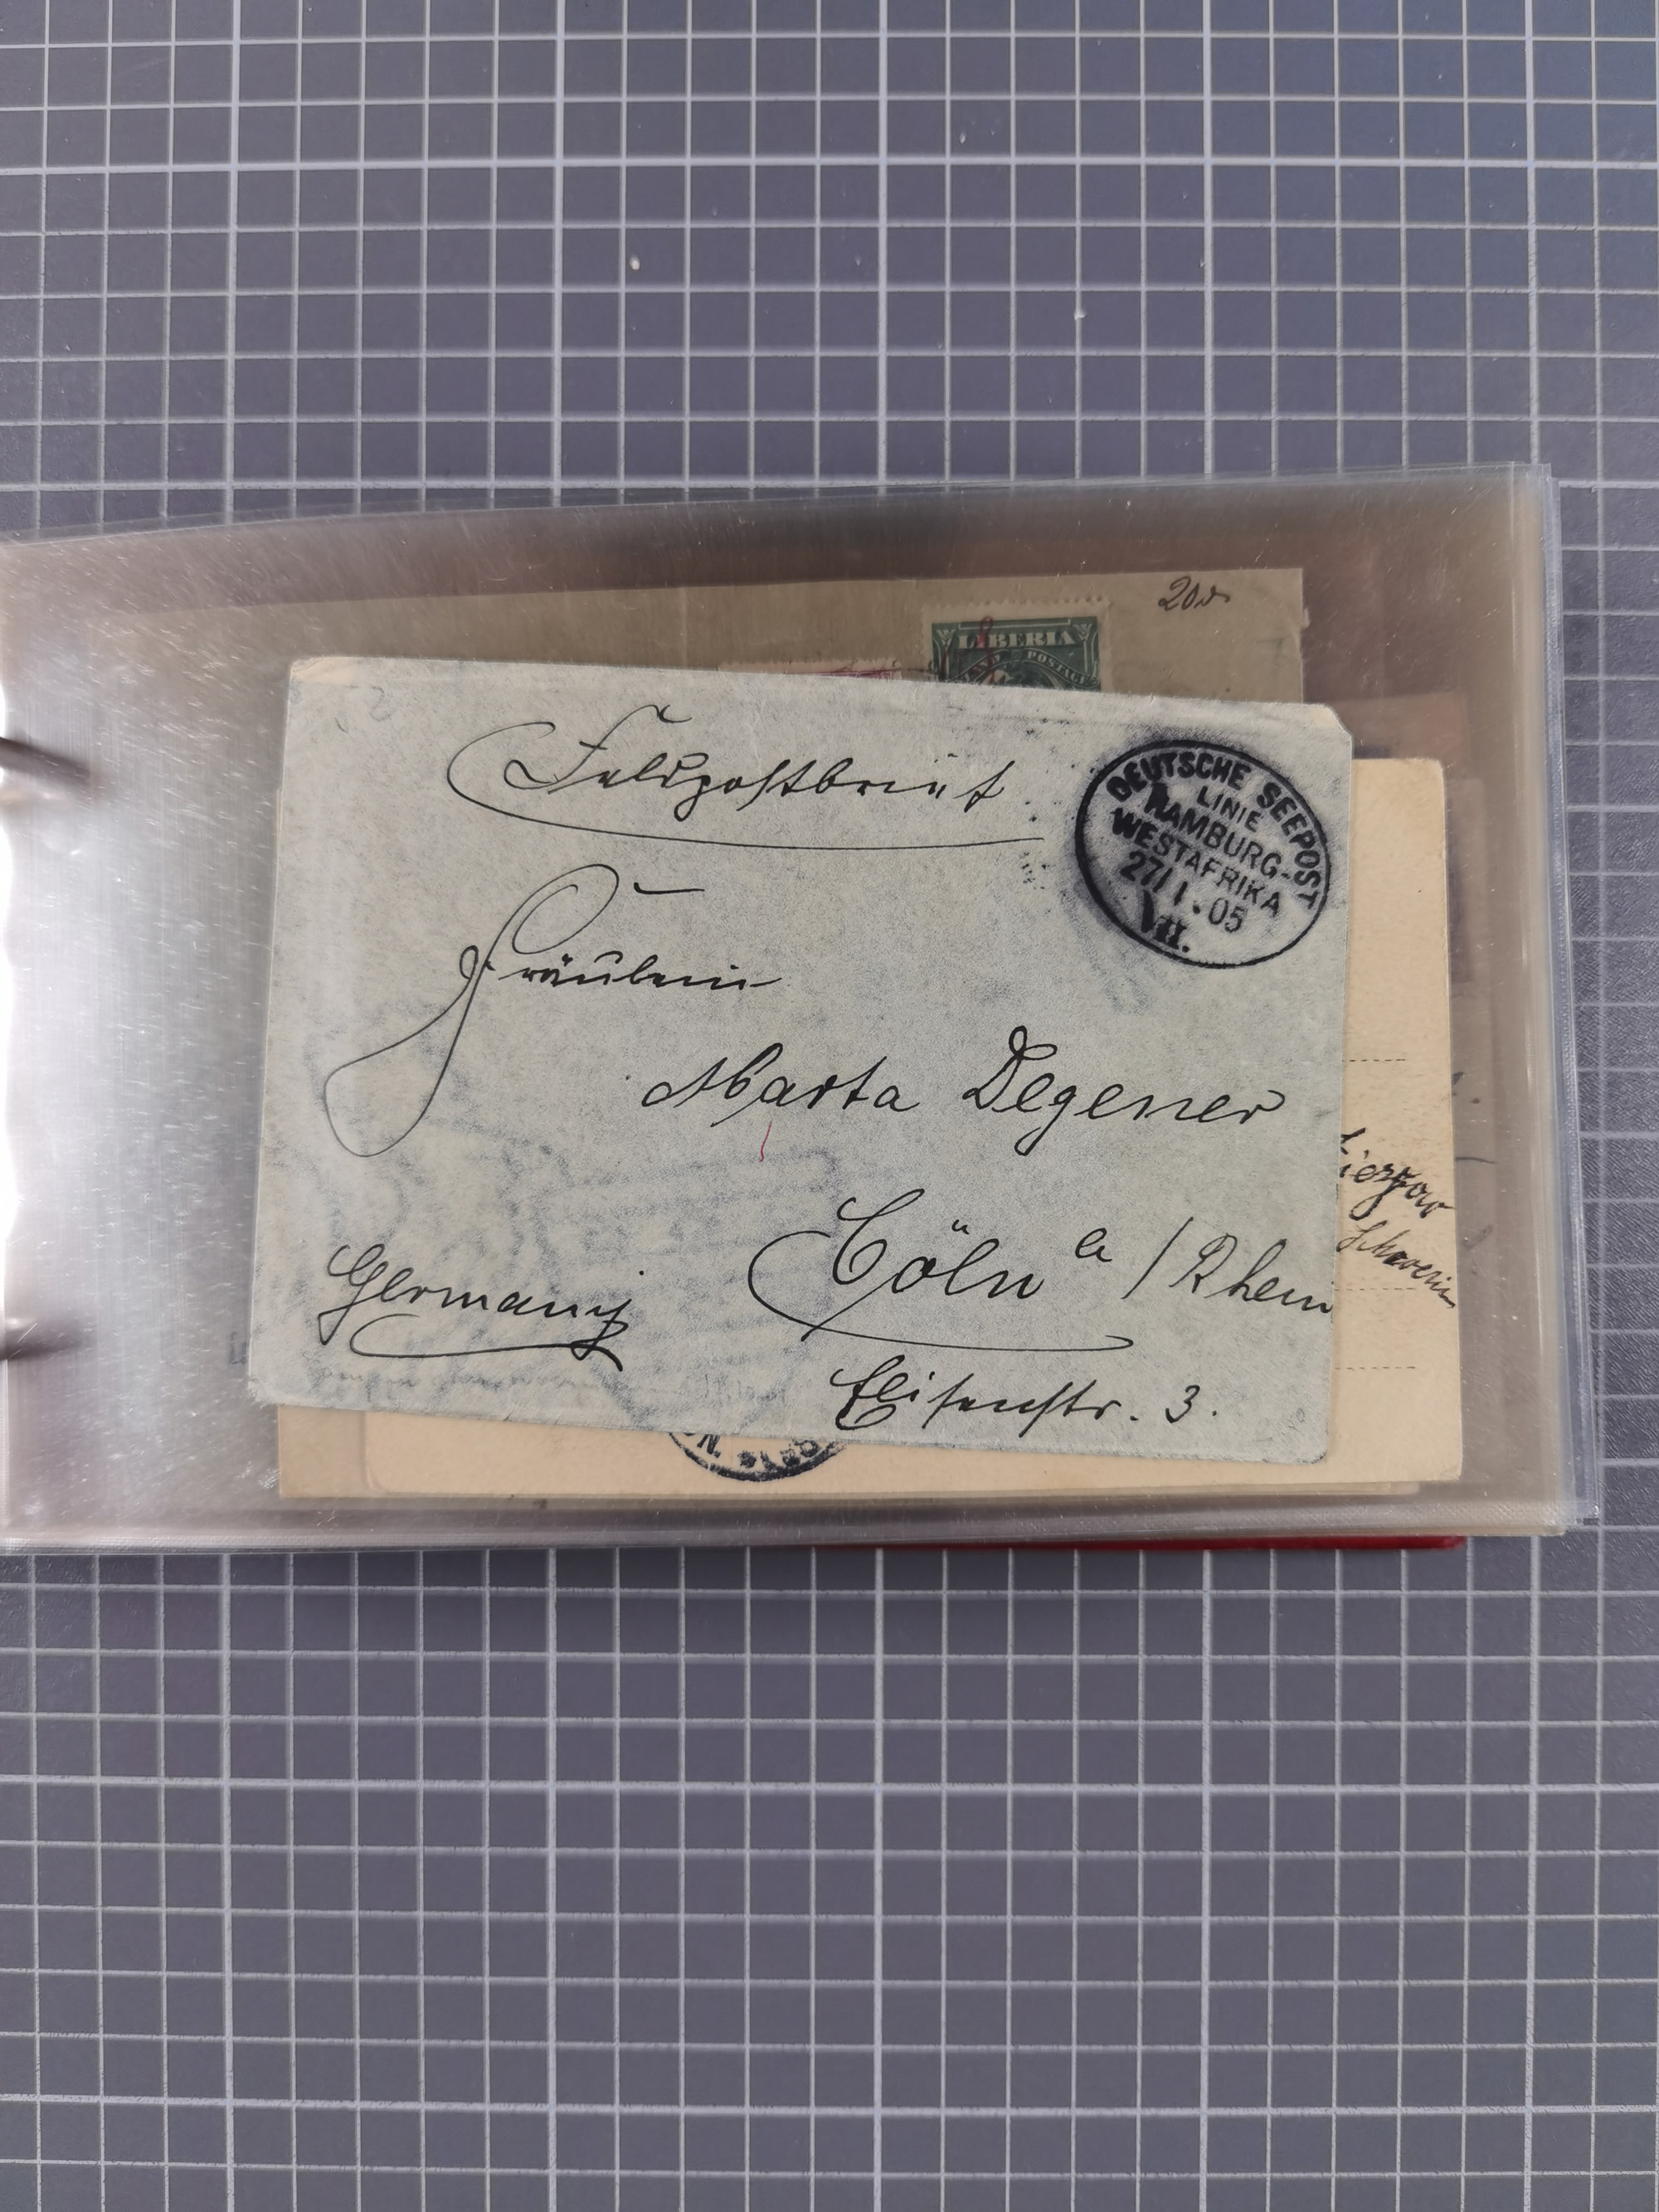 20
LIBERIA
POSTAGE
Feldpostbrief
DEUTSCHE SEEPOST
LINIE
HAMBURG-
WESTAFRIKA
27/1.05
VII.
Fräulein
Marta Degener
Cöln a/Rhein
Germany
Elisenstr. 3.
Schwerin